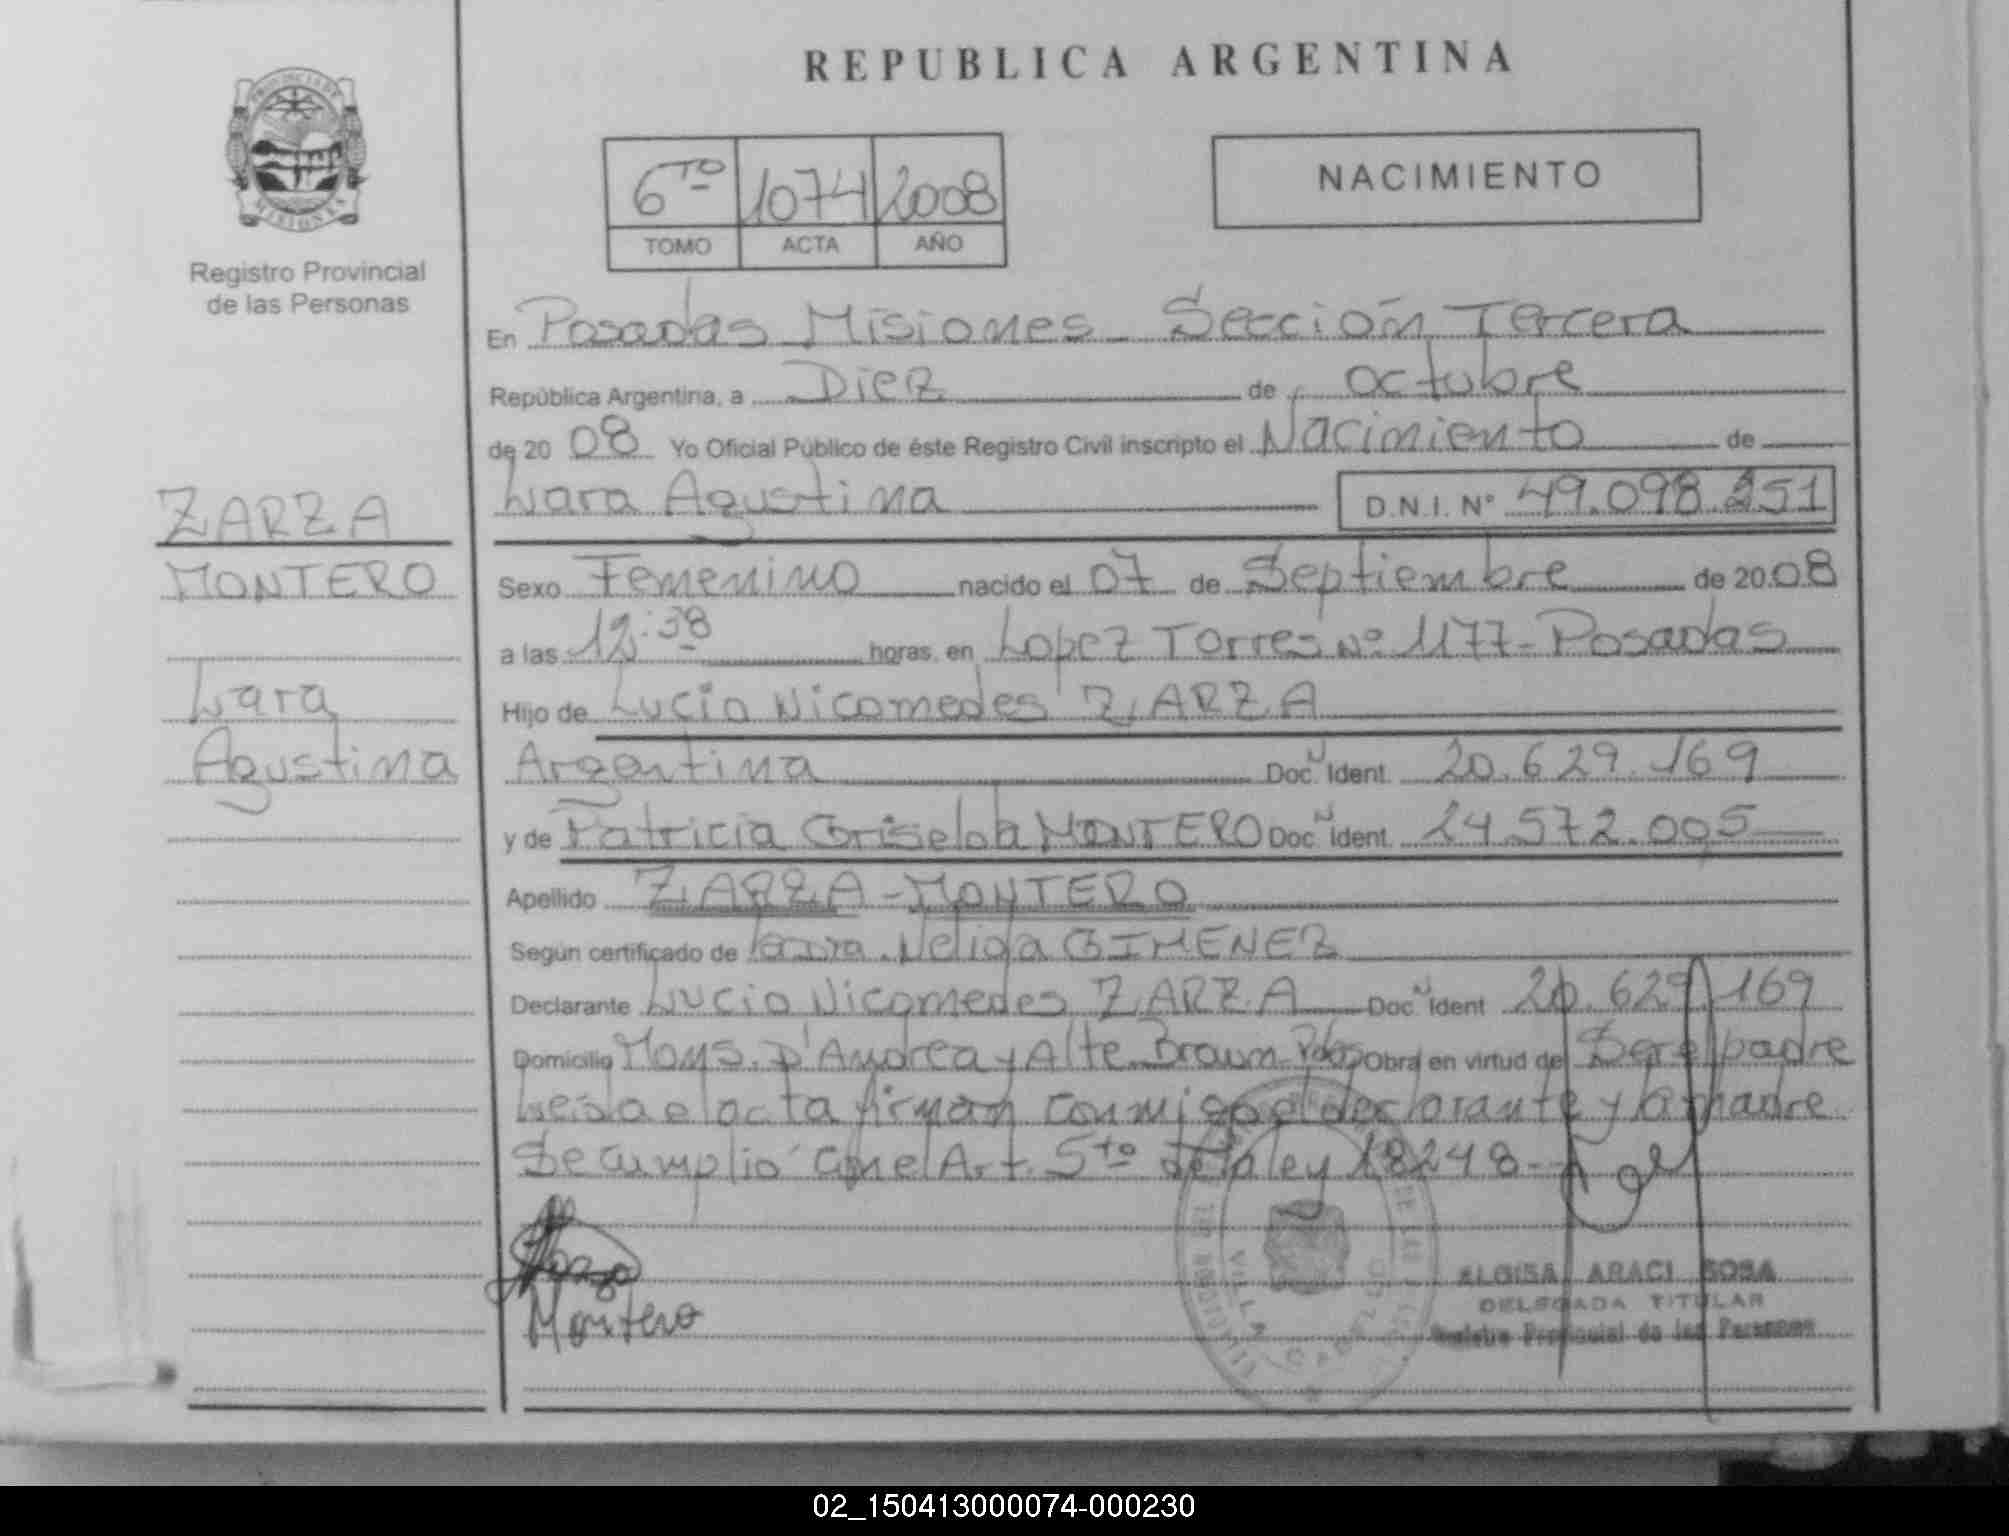 REPUBLICA ARGENTINA
PROVINCIA DE
MISIONES
Registro Provincial
de las Personas
6TO 1074 2008
TOMO ACTA AÑO
NACIMIENTO
En Posadas Misiones - Sección Tercera
República Argentina, a Diez de octubre
de 2008 Yo Oficial Público de éste Registro Civil inscripto el Nacimiento de
Lara Agustina D.N.I. Nº 49.098.251
ZARZA
MONTERO
Lara
Agustina
Sexo Femenino nacido el 07 de Septiembre de 2008
a las 12:38 horas, en Lopez Torres Nº 1177 - Posadas
Hijo de Lucio Nicomedes ZARZA
Argentina Doc. Ident. 20.629.169
y de Patricia Griselda MONTERO Doc. Ident. 24.572.005
Apellido ZARZA - MONTERO
Según certificado de Nelida GIMENEZ
Declarante Lucio Nicomedes ZARZA Doc. Ident 20.629.169
Domicilio Mons. D'Andrea y Alte. Brown - Pdas Obra en virtud de Ser el padre
Leida el acta firman conmigo el declarante y la madre
Se cumplio con el Art. 5to de la ley 18248 -
Montero
ELOISA ARACI SOSA
DELEGADA TITULAR
Registro Provincial de las Personas
02_150413000074-000230